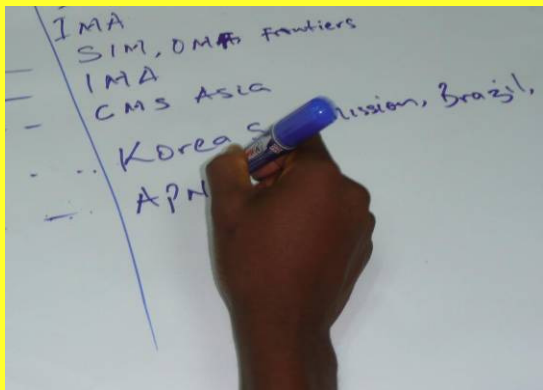 IMA
SIM, OMF Frontiers
IMA
CMS Asia
Korea Brazil,
APN